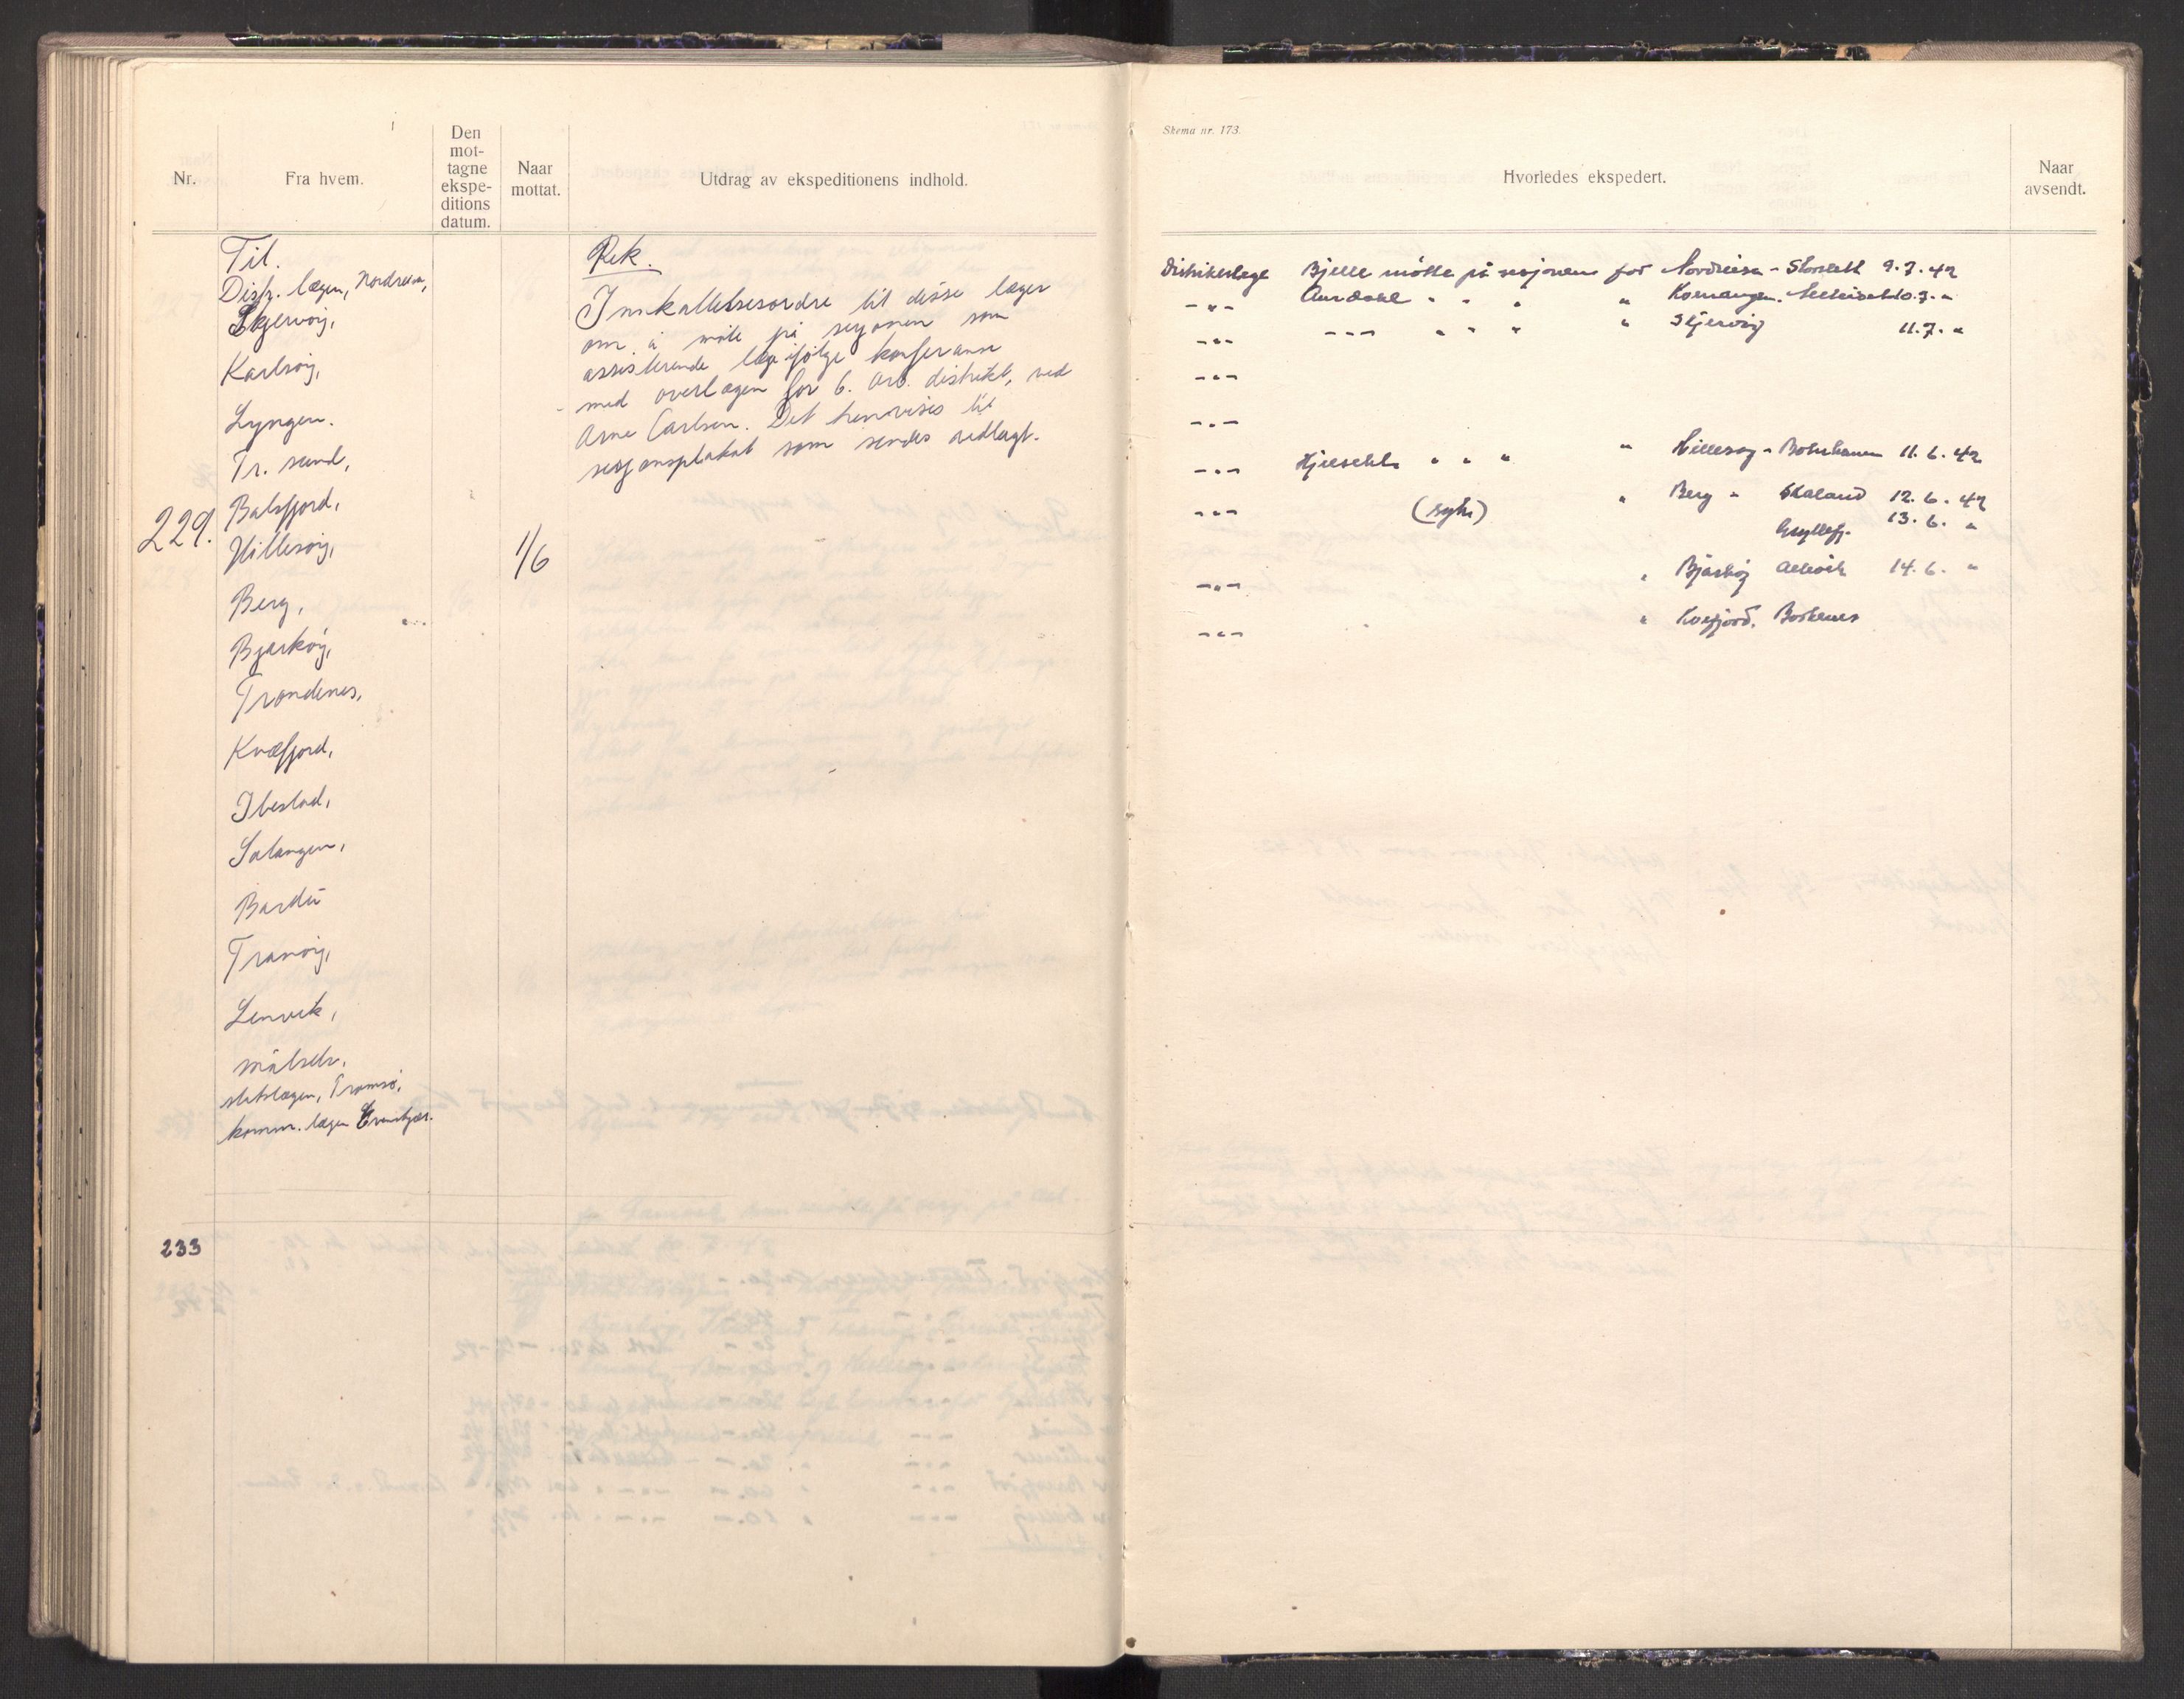 Nr.
Fra hvem.
Den
mot-
tagne
ekspe-
ditions
datum.
Naar
mottat.
Utdrag av ekspeditionens indhold.
Til.
Distr. lægen, Nordreisa,
Skjervøy,
Karlsøy,
Lyngen.
Tr. sund,
Balsfjord,
229.
Hillesøy,
1/6
Berg,
Bjarkøy,
Trondenes,
Kvæfjord,
Ibestad,
Salangen,
Bardu
Tranøy,
Lenvik,
målselv.
statslægen, Tromsø,
komm. lægen
233
Rek.
Innkallelsesordre til disse læger
om å møte på sesjonen som
assisterende læge ifølge konferanse
med overlægen for 6. arb. distrikt, ved
Arne Carlsen. Det henvises til
sesjonsplakat som sendes vedlagt.
Skema nr. 173.
Hvorledes ekspedert.
Naar
avsendt.
Distriktslæge Bjelle møtte på sesjonen for Nordreisa - Storslett 9.7.42
-"- Aurdahl " " " " Kvænangen. 10.7. "
-"- -"- " " " " Skjervøy 11.7. "
-"-
-"-
-"- " " " " Hillesøy - Botnhamn 11.6.42
-"- (syk) " Berg - Skaland 12.6.42
Gryllefj. 13.6. "
-"- " Bjarkøy 14.6. "
-"- " Kvefjord. Borkenes